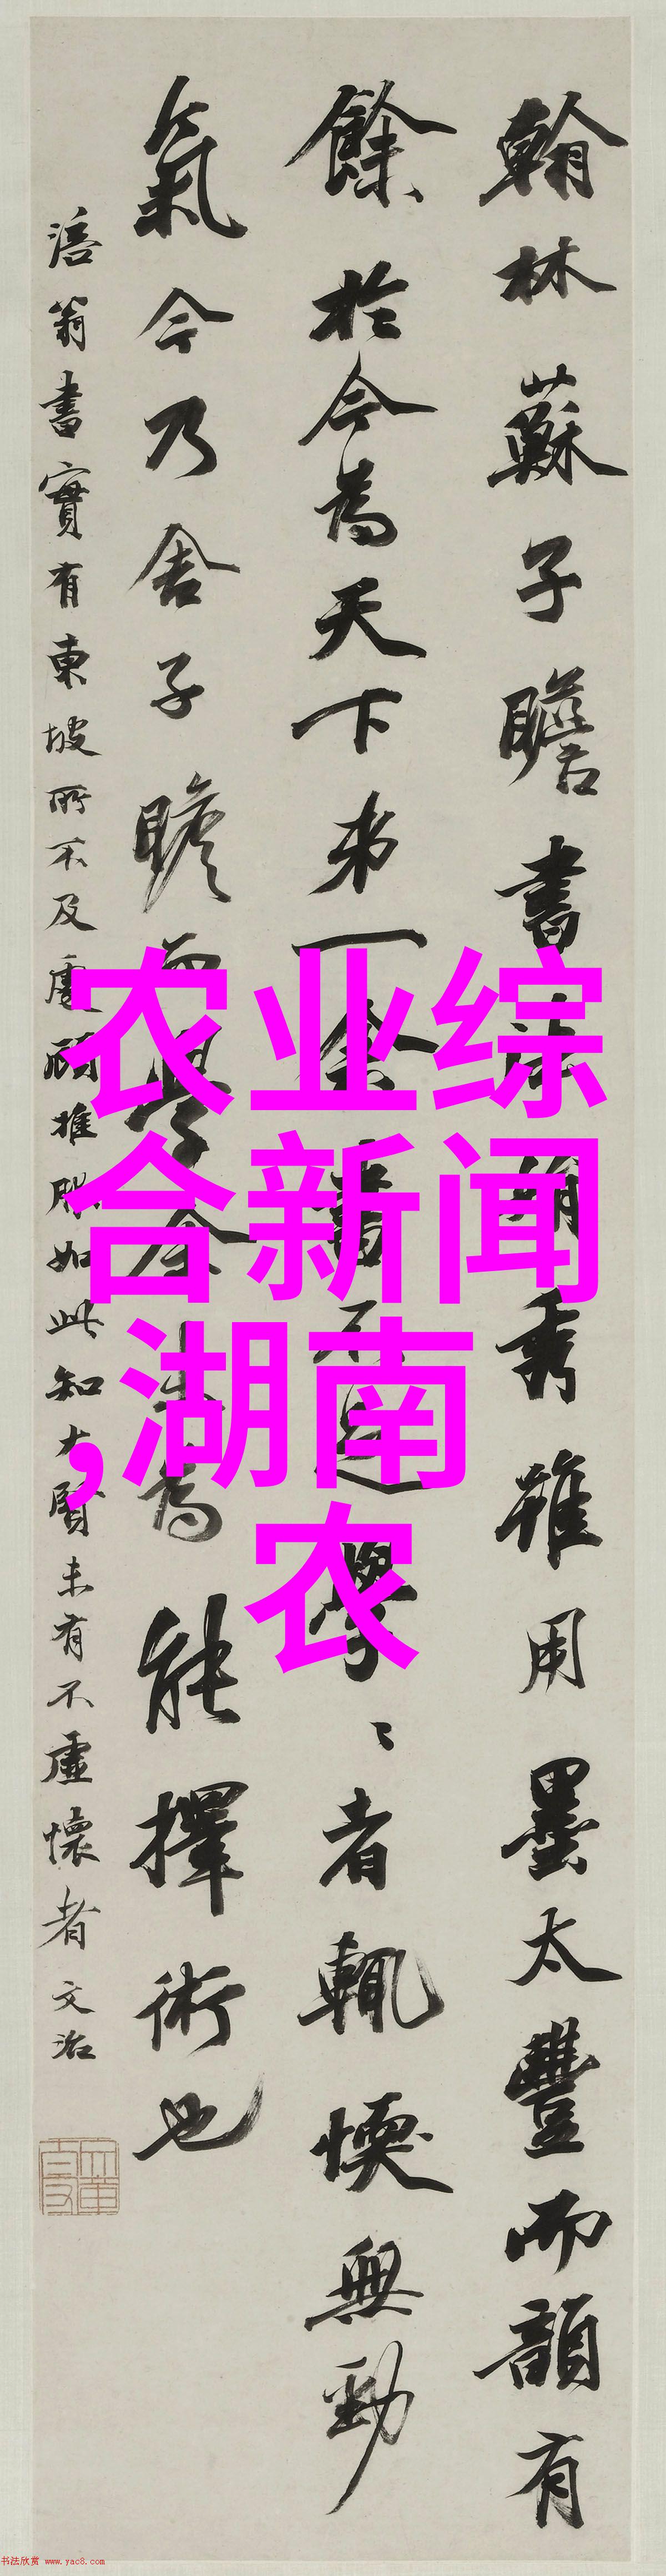 翰林蘇子瞻書法娟秀雖用墨太豐而韻有
餘於今為天下第一余書不足學〻者輒愞無勁
氣今乃舍子瞻而學余未為能擇術也
涪翁書實有東坡所不及處顧推服如此知大賢未有不虛懷者文治
农业综
合新闻
,湖南
农
书法欣赏 www.yac8.com